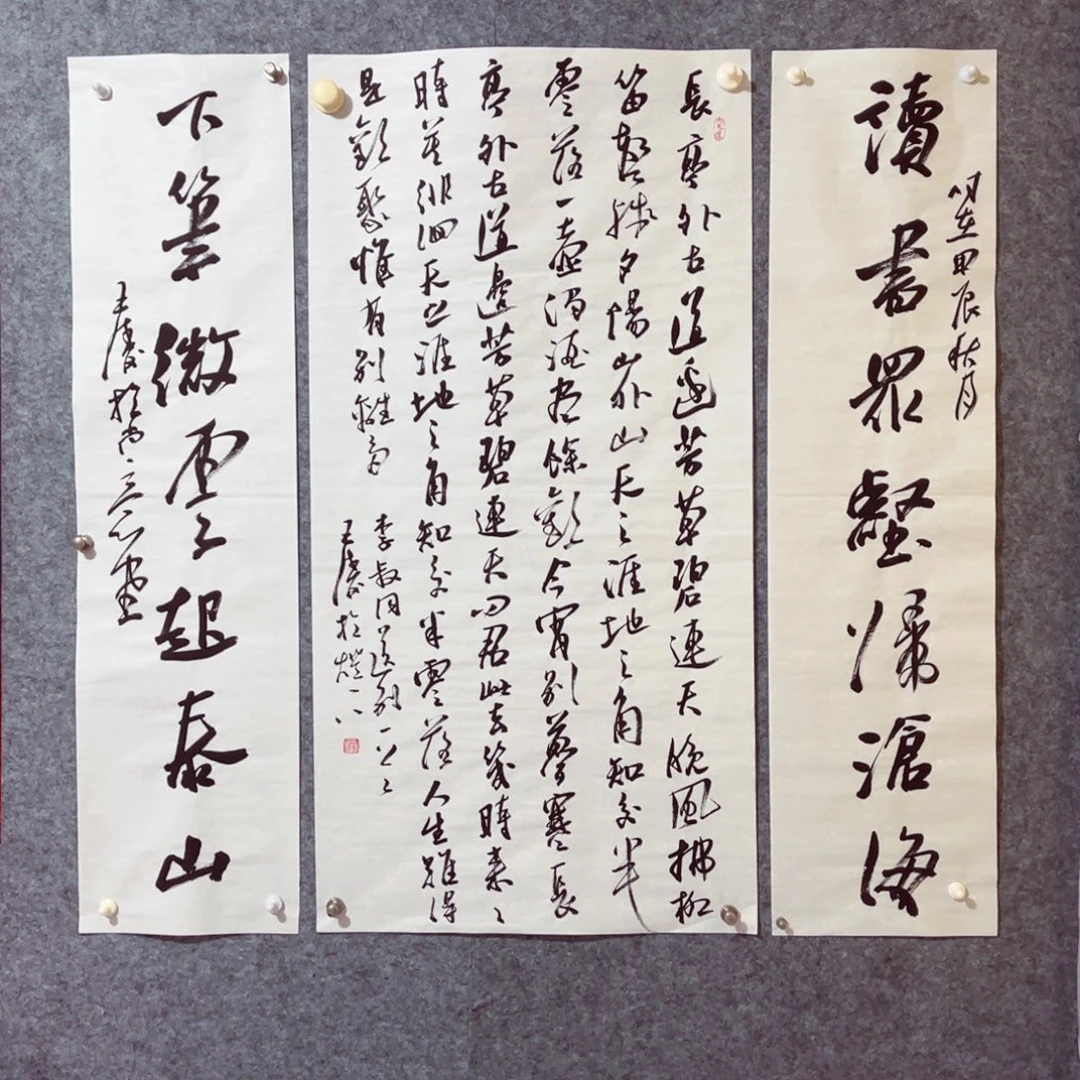 時在甲辰秋月
讀書眾壑歸滄海
長亭外古道邊芳草碧連天晚風拂柳
笛聲殘夕陽山外山天之涯地之角知交半
零落一壺濁酒盡餘歡今宵別夢寒長
亭外古道邊芳草碧連天問君此去幾時来〻
時莫徘徊天之涯地之角知交半零落人生難得
是歡聚惟有別離多
李叔同送別一
王慶於
下筆微雲起泰山
王慶於